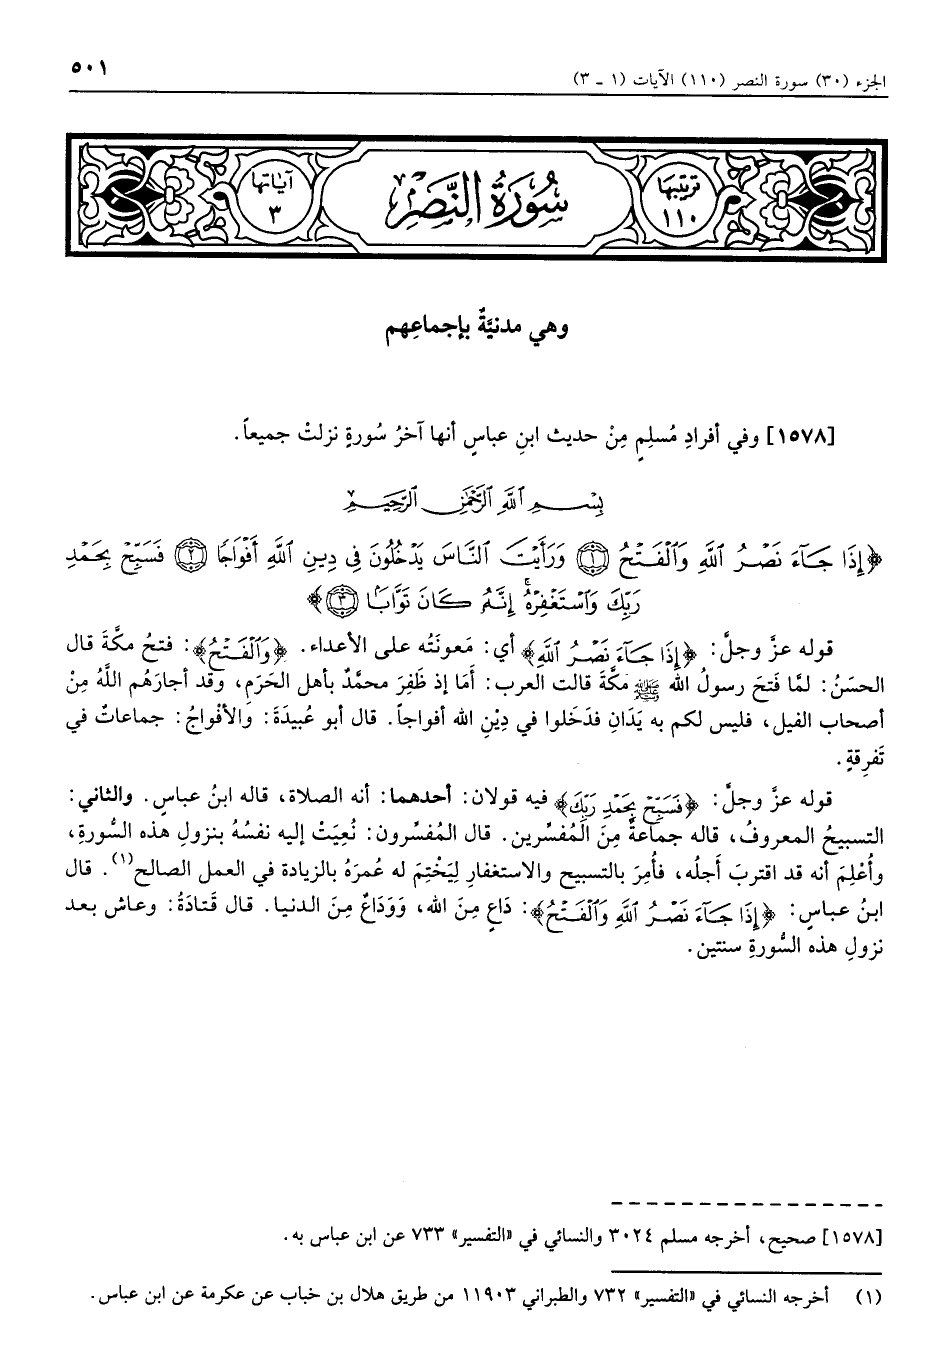 الجزء (٣٠) سورة النصر (١١٠) الآيات (١ ـ ٣)
٥٠١
ترتيبها ١١٠
سُورَةُ النَّصْرِ
آياتها ٣
وهي مدنيَّةٌ بإجماعِهم
[١٥٧٨] وفي أفرادِ مُسلِمٍ مِنْ حديث ابنِ عباسٍ أنها آخرُ سُورةٍ نزلتْ جميعاً.
بِسْمِ اللَّهِ الرَّحْمَٰنِ الرَّحِيمِ
﴿إِذَا جَآءَ نَصْرُ اللَّهِ وَالْفَتْحُ ۝١ وَرَأَيْتَ النَّاسَ يَدْخُلُونَ فِى دِينِ اللَّهِ أَفْوَاجًا ۝٢ فَسَبِّحْ بِحَمْدِ
رَبِّكَ وَاسْتَغْفِرْهُ ۚ إِنَّهُ كَانَ تَوَّابًا ۝٣﴾
قوله عزَّ وجلَّ: ﴿إِذَا جَآءَ نَصْرُ اللَّهِ﴾ أي: مَعونَتُه على الأعداء. ﴿وَالْفَتْحُ﴾: فتحُ مكَّةَ قال
الحسَنُ: لمَّا فَتَحَ رسولُ الله ﷺ مكَّةَ قالت العرب: أمَا إذ ظَفِرَ محمَّدٌ بأهل الحَرَمِ، وقد أجارَهُم اللَّهُ مِنْ
أصحاب الفيل، فليس لكم به يَدَانِ فدَخَلوا في دِيْنِ الله أفواجاً. قال أبو عُبيدَةَ: والأفْواجُ: جماعاتٌ في
تَفرِقةٍ.
قوله عزَّ وجلَّ: ﴿فَسَبِّحْ بِحَمْدِ رَبِّكَ﴾ فيه قولان: أحدهما: أنه الصلاة، قاله ابنُ عباسٍ. والثاني:
التسبيحُ المعروفُ، قاله جماعةٌ مِنَ المُفسِّرين. قال المُفسِّرون: نُعِيَتْ إليه نفسُهُ بنزولِ هذه السُّورةِ،
وأُعْلِمَ أنه قد اقتربَ أجلُه، فأُمِرَ بالتسبيح والاستغفارِ لِيَخْتِمَ له عُمرَهُ بالزيادة في العمل الصالح(١). قال
ابنُ عباسٍ: ﴿إِذَا جَآءَ نَصْرُ اللَّهِ وَالْفَتْحُ﴾: دَاعٍ مِنَ الله، وَوَدَاعٌ مِنَ الدنيا. قال قَتادَةُ: وعاش بعد
نزولِ هذه السُّورةِ سنتين.
[١٥٧٨] صحيح، أخرجه مسلم ٣٠٢٤ والنسائي في «التفسير» ٧٣٣ عن ابن عباس به.
(١) أخرجه النسائي في «التفسير» ٧٣٢ والطبراني ١١٩٠٣ من طريق هلال بن خباب عن عكرمة عن ابن عباس.